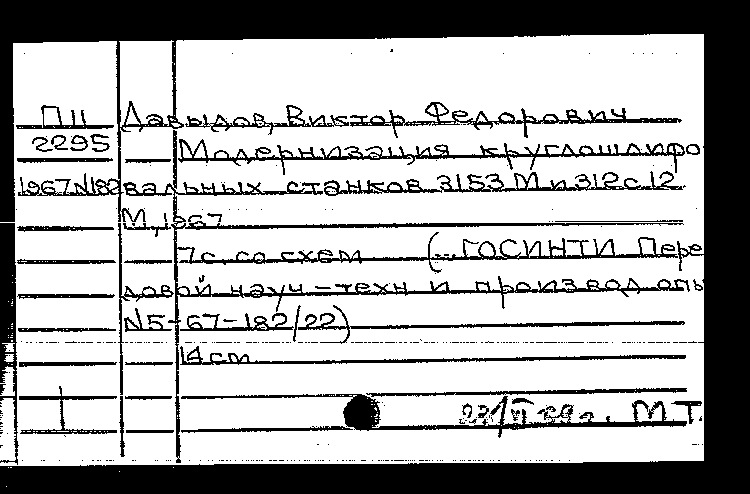 П11 Давыдов, Виктор Федорович
2295 Модернизация круглошлифо
1967 N182 вальных станков 3153 М и 312 с. 12
М., 1967
7 с. со схем (...ГОСИНТИ Пере
довой науч-техн и производ опы
N5-67-182/22)
14 см
М.Т.